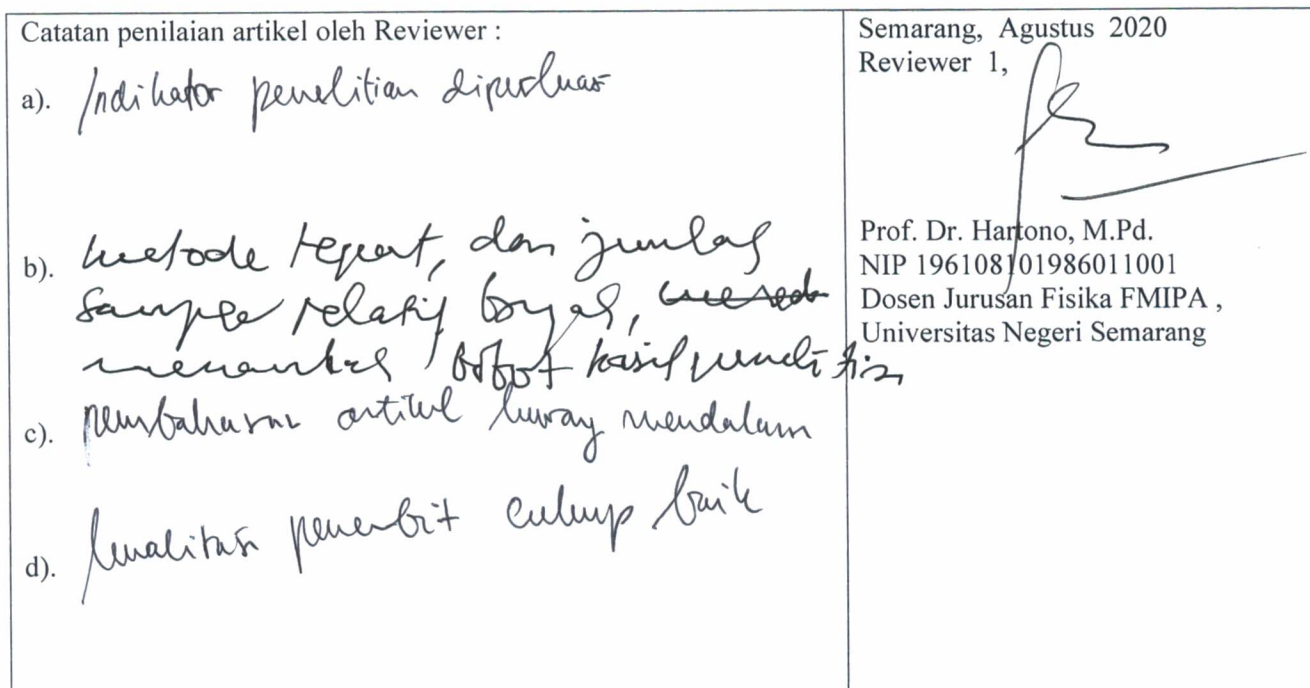 Catatan penilaian artikel oleh Reviewer :
a). Indikator penelitian diperluas
b). metode tepat, dan jumlah
sampel relatif banyak,
bobot hasil penelitian
c). pembahasan artikel kurang mendalam
d). kualitas penerbit cukup baik
Semarang, Agustus 2020
Reviewer 1,
Prof. Dr. Hartono, M.Pd.
NIP 196108101986011001
Dosen Jurusan Fisika FMIPA ,
Universitas Negeri Semarang